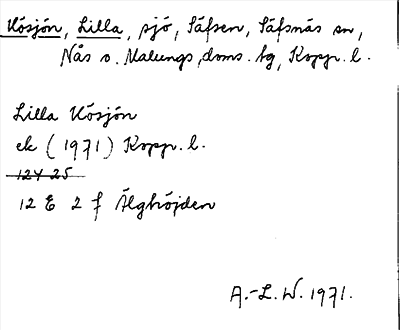 Kösjön, Lilla, sjö, Säfsen, Säfsnäs sn,
Nås o. Malungs doms. hg, Kopp. l.
Lilla Kösjön
ek (1971) Kopp. l.
124 25
12 E 2 f Älghöjden
A.-L. W. 1971.